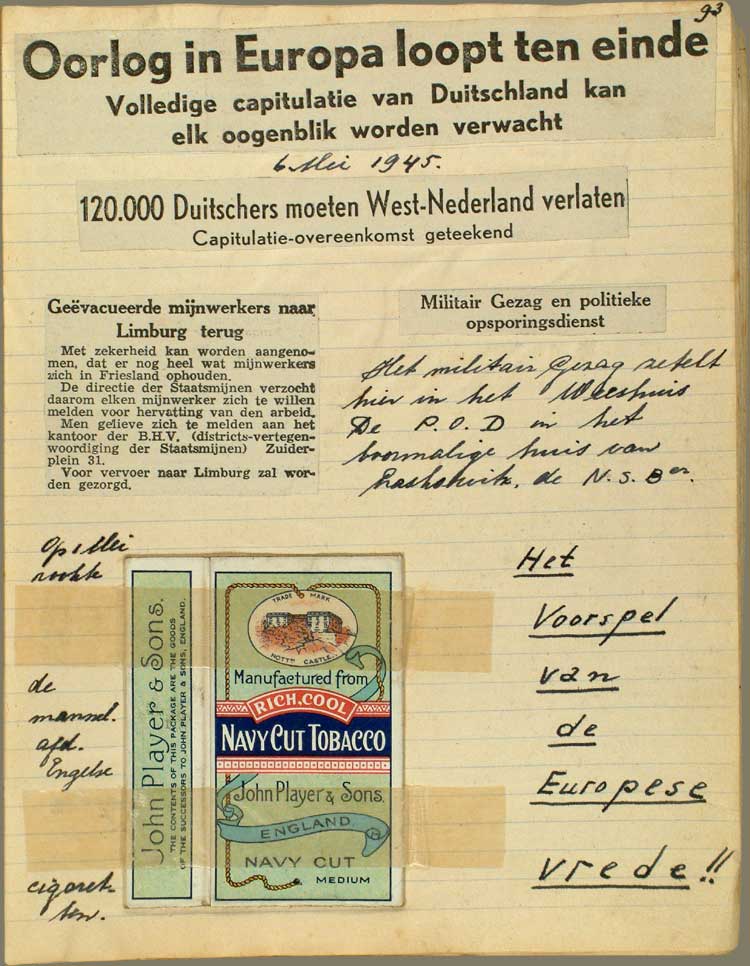 93
Oorlog in Europa loopt ten einde
Volledige capitulatie van Duitschland kan
elk oogenblik worden verwacht
6 Mei 1945.
120.000 Duitschers moeten West-Nederland verlaten
Capitulatie-overeenkomst geteekend
Geëvacueerde mijnwerkers naar
Limburg terug
Met zekerheid kan worden aangeno-
men, dat er nog heel wat mijnwerkers
zich in Friesland ophouden.
De directie der Staatsmijnen verzocht
daarom elken mijnwerker zich te willen
melden voor hervatting van den arbeid.
Men gelieve zich te melden aan het
kantoor der B.H.V. (districts-vertegen-
woordiging der Staatsmijnen) Zuider-
plein 31.
Voor vervoer naar Limburg zal wor-
den gezorgd.
Militair Gezag en politieke
opsporingsdienst
Het militair Gezag zetelt
hier in het Weeshuis
De P.O.D in het
voormalige huis van
de N.S.Ber.
Op 1 Mei
rookte
de
mannel.
afd.
Engelse
cigaret-
ten.
John Player & Sons.
THE CONTENTS OF THIS PACKAGE ARE THE GOODS
OF THE SUCCESSORS TO JOHN PLAYER & SONS, ENGLAND.
TRADE MARK
NOTTM CASTLE.
Manufactured from
RICH, COOL
NAVY CUT TOBACCO
John Player & Sons.
ENGLAND
NAVY CUT
MEDIUM
Het
Voorspel
van
de
Europese
vrede!!